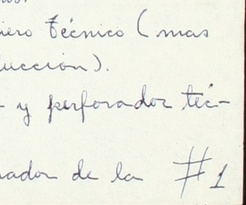 iero Técnico (mas
ucción).
- y perforador téc-
nador de la #1